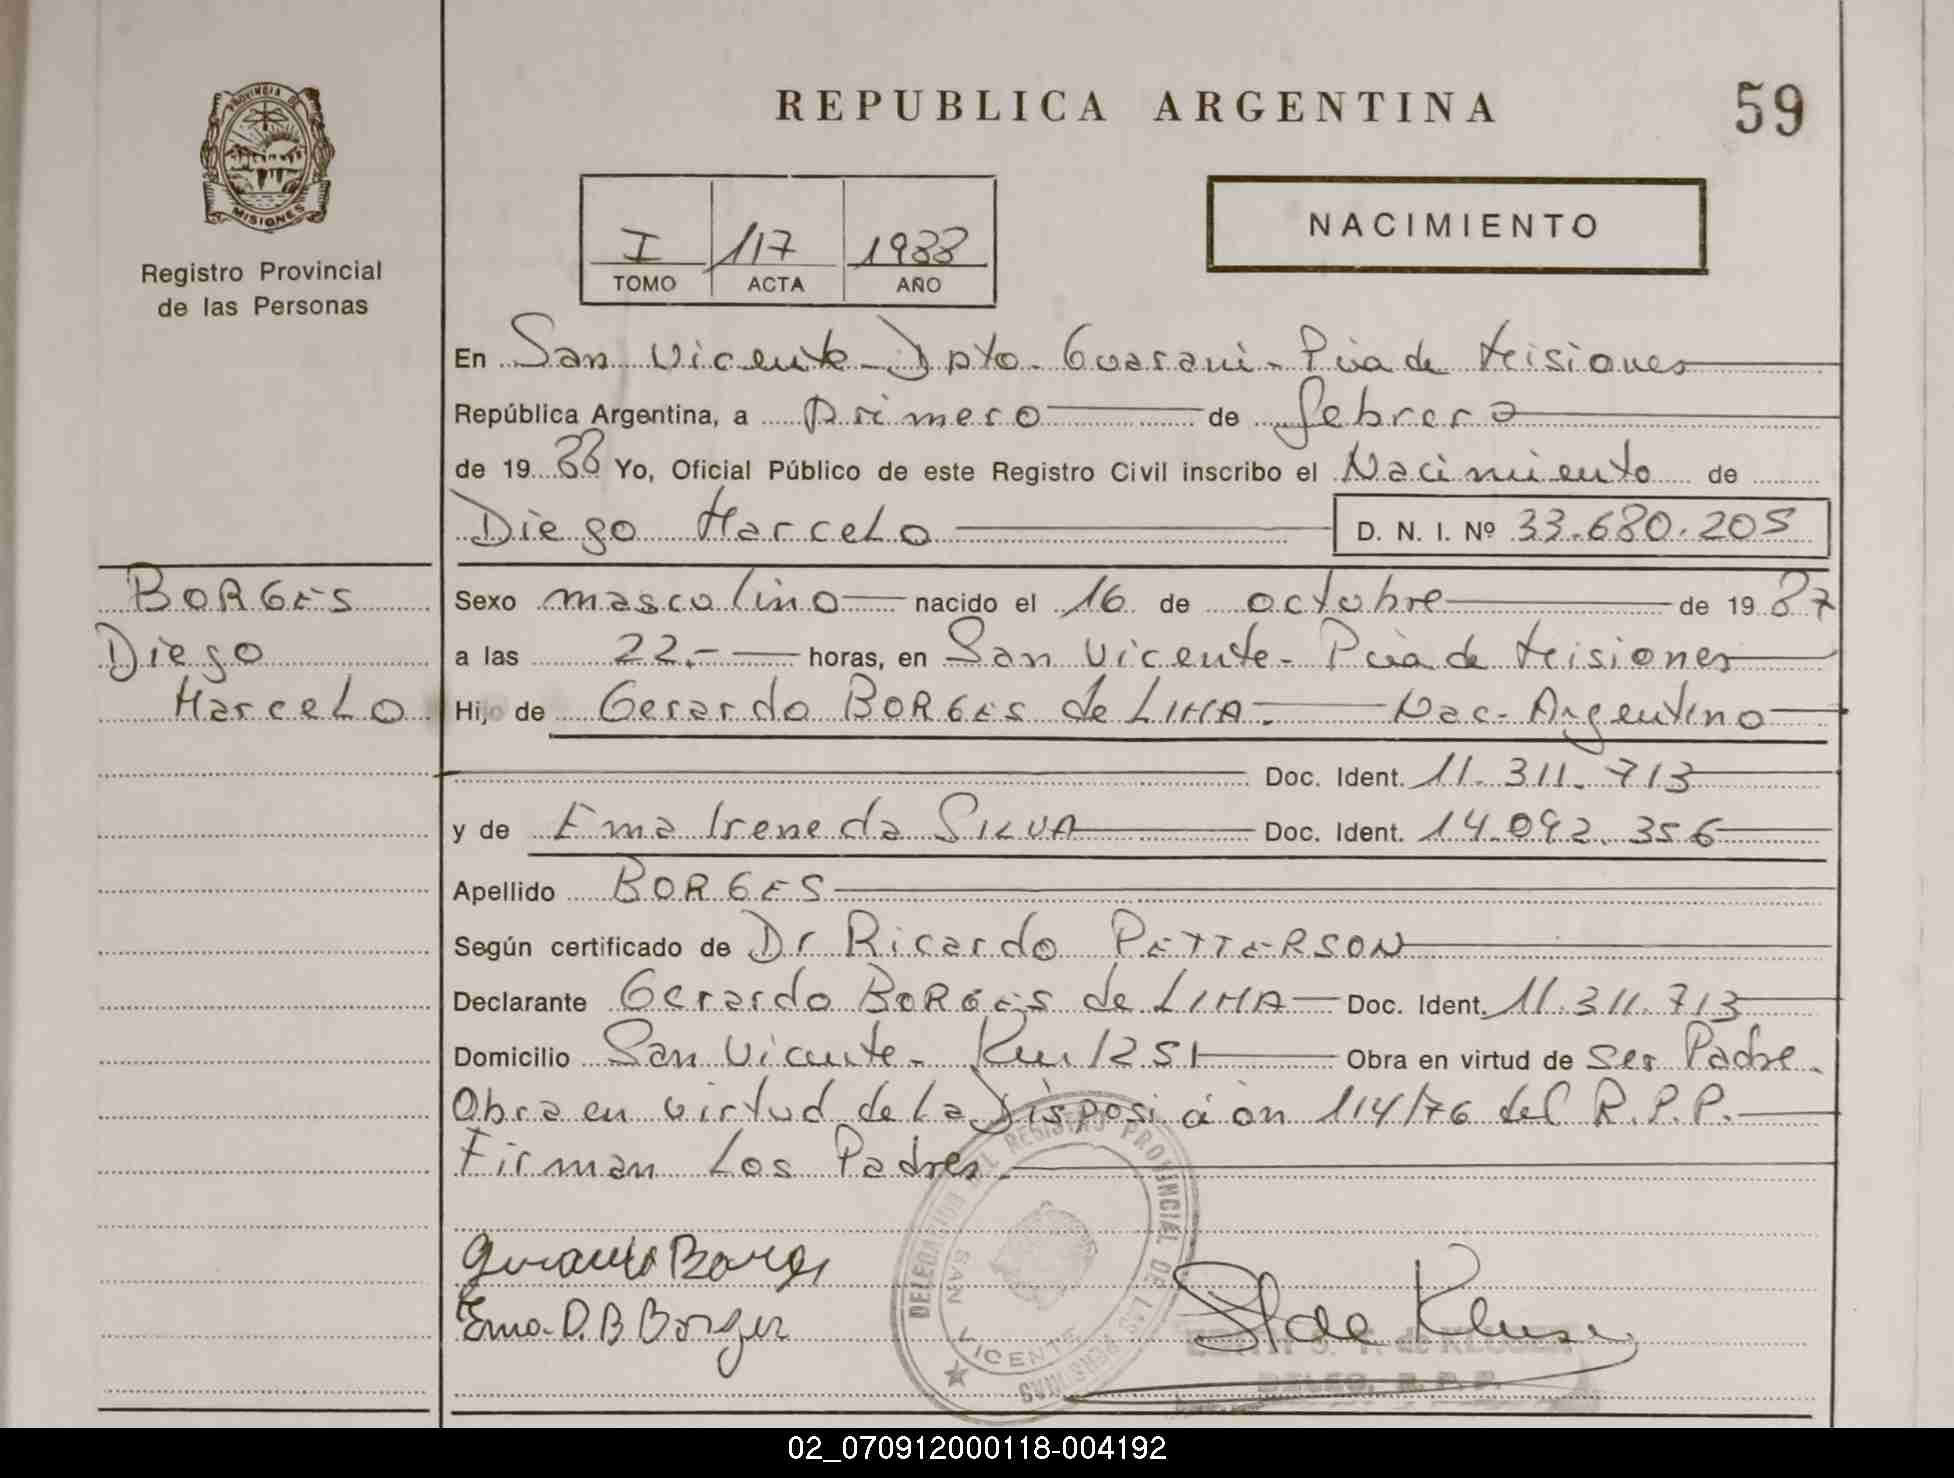 PROVINCIA DE
MISIONES
Registro Provincial
de las Personas
REPUBLICA ARGENTINA
59
I 117 1988
TOMO ACTA AÑO
NACIMIENTO
En San Vicente - Dpto. Guaraní - Pcia de Misiones
República Argentina, a primero de febrero
de 1988 Yo, Oficial Público de este Registro Civil inscribo el Nacimiento de
Diego Marcelo D. N. I. Nº 33.680.205
BORGES
Diego
Marcelo
Sexo masculino nacido el 16 de octubre de 1987
a las 22.- horas, en San Vicente - Pcia de Misiones
Hijo de Gerardo BORGES de LIMA. Nac. Argentino
Doc. Ident. 11.311.713
y de Ema Irene da SILVA Doc. Ident. 14.092.356
Apellido BORGES
Según certificado de Dr Ricardo PETTERSON
Declarante Gerardo BORGES de LIMA Doc. Ident. 11.311.713
Domicilio San Vicente - Km 1251 Obra en virtud de ser Padre.
Obra en virtud de la Disposición 114/76 del R.P.P.
Firman Los Padres.
DELEGACION DEL REGISTRO PROVINCIAL DE LAS PERSONAS
SAN VICENTE
Gerardo Borges
Ema. D. B Borges
de KLUSER
02_070912000118-004192